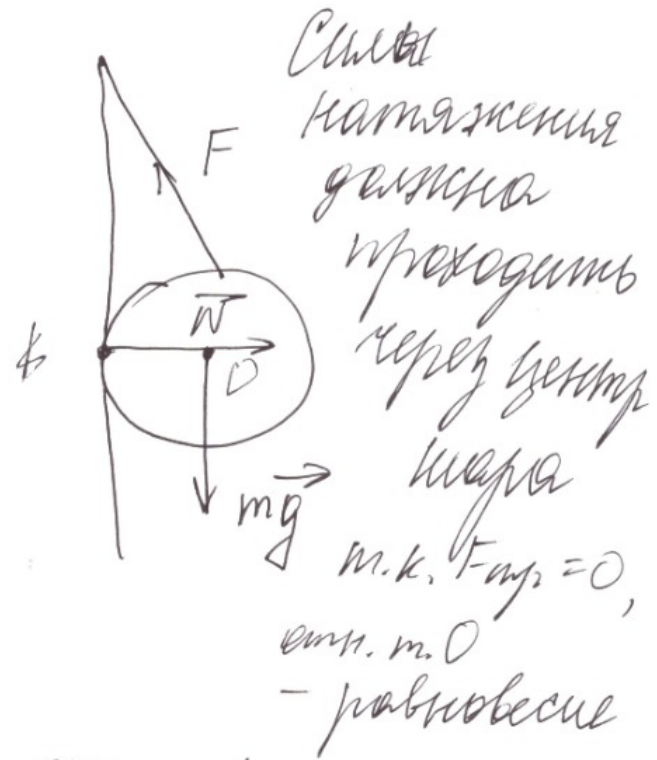 Сила
натяжения
должна
F
проходить
через центр
N
O
шара
mg
т.к. Fтр = 0,
отн. т. О
- равновесие